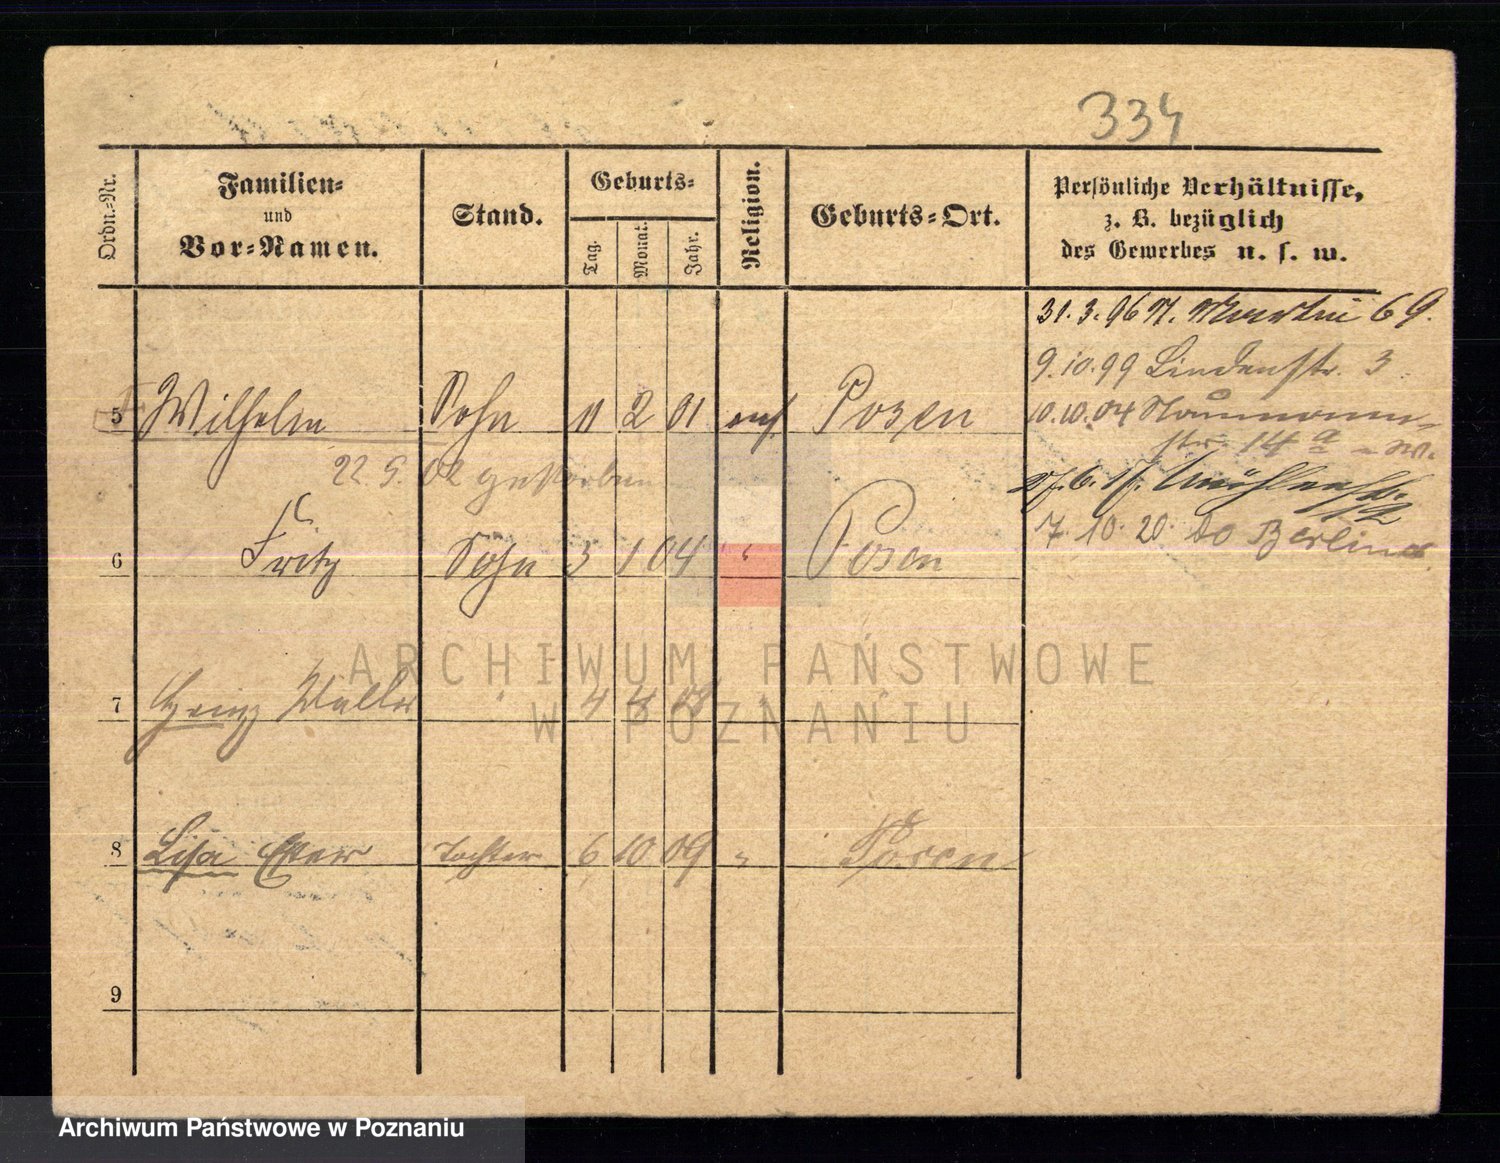 334
Ordn.-Nr.
Familien-
und
Vor-Namen.
Stand.
Geburts-
Tag.
Monat.
Jahr.
Religion.
Geburts-Ort.
Persönliche Verhältnisse,
z. B. bezüglich
des Gewerbes u. s. w.
31.3.96 St. Martin 69.
9.10.99 Lindenstr. 3
5 Wilhelm Sohn 11 2 01 Posen
10.10.04 Naumann-
str. 14 a
22 9. 02 gestorben
Mühlenstr.
12
6 Fritz Sohn 3 1 04 " Posen
7. 10. 20. Berlin
ARCHIWUM PAŃSTWOWE
W POZNANIU
7 Heinz Walter " 4 4 08 "
8 Lisa Ester Tochter 6 10 09 " Posen
9
Archiwum Państwowe w Poznaniu